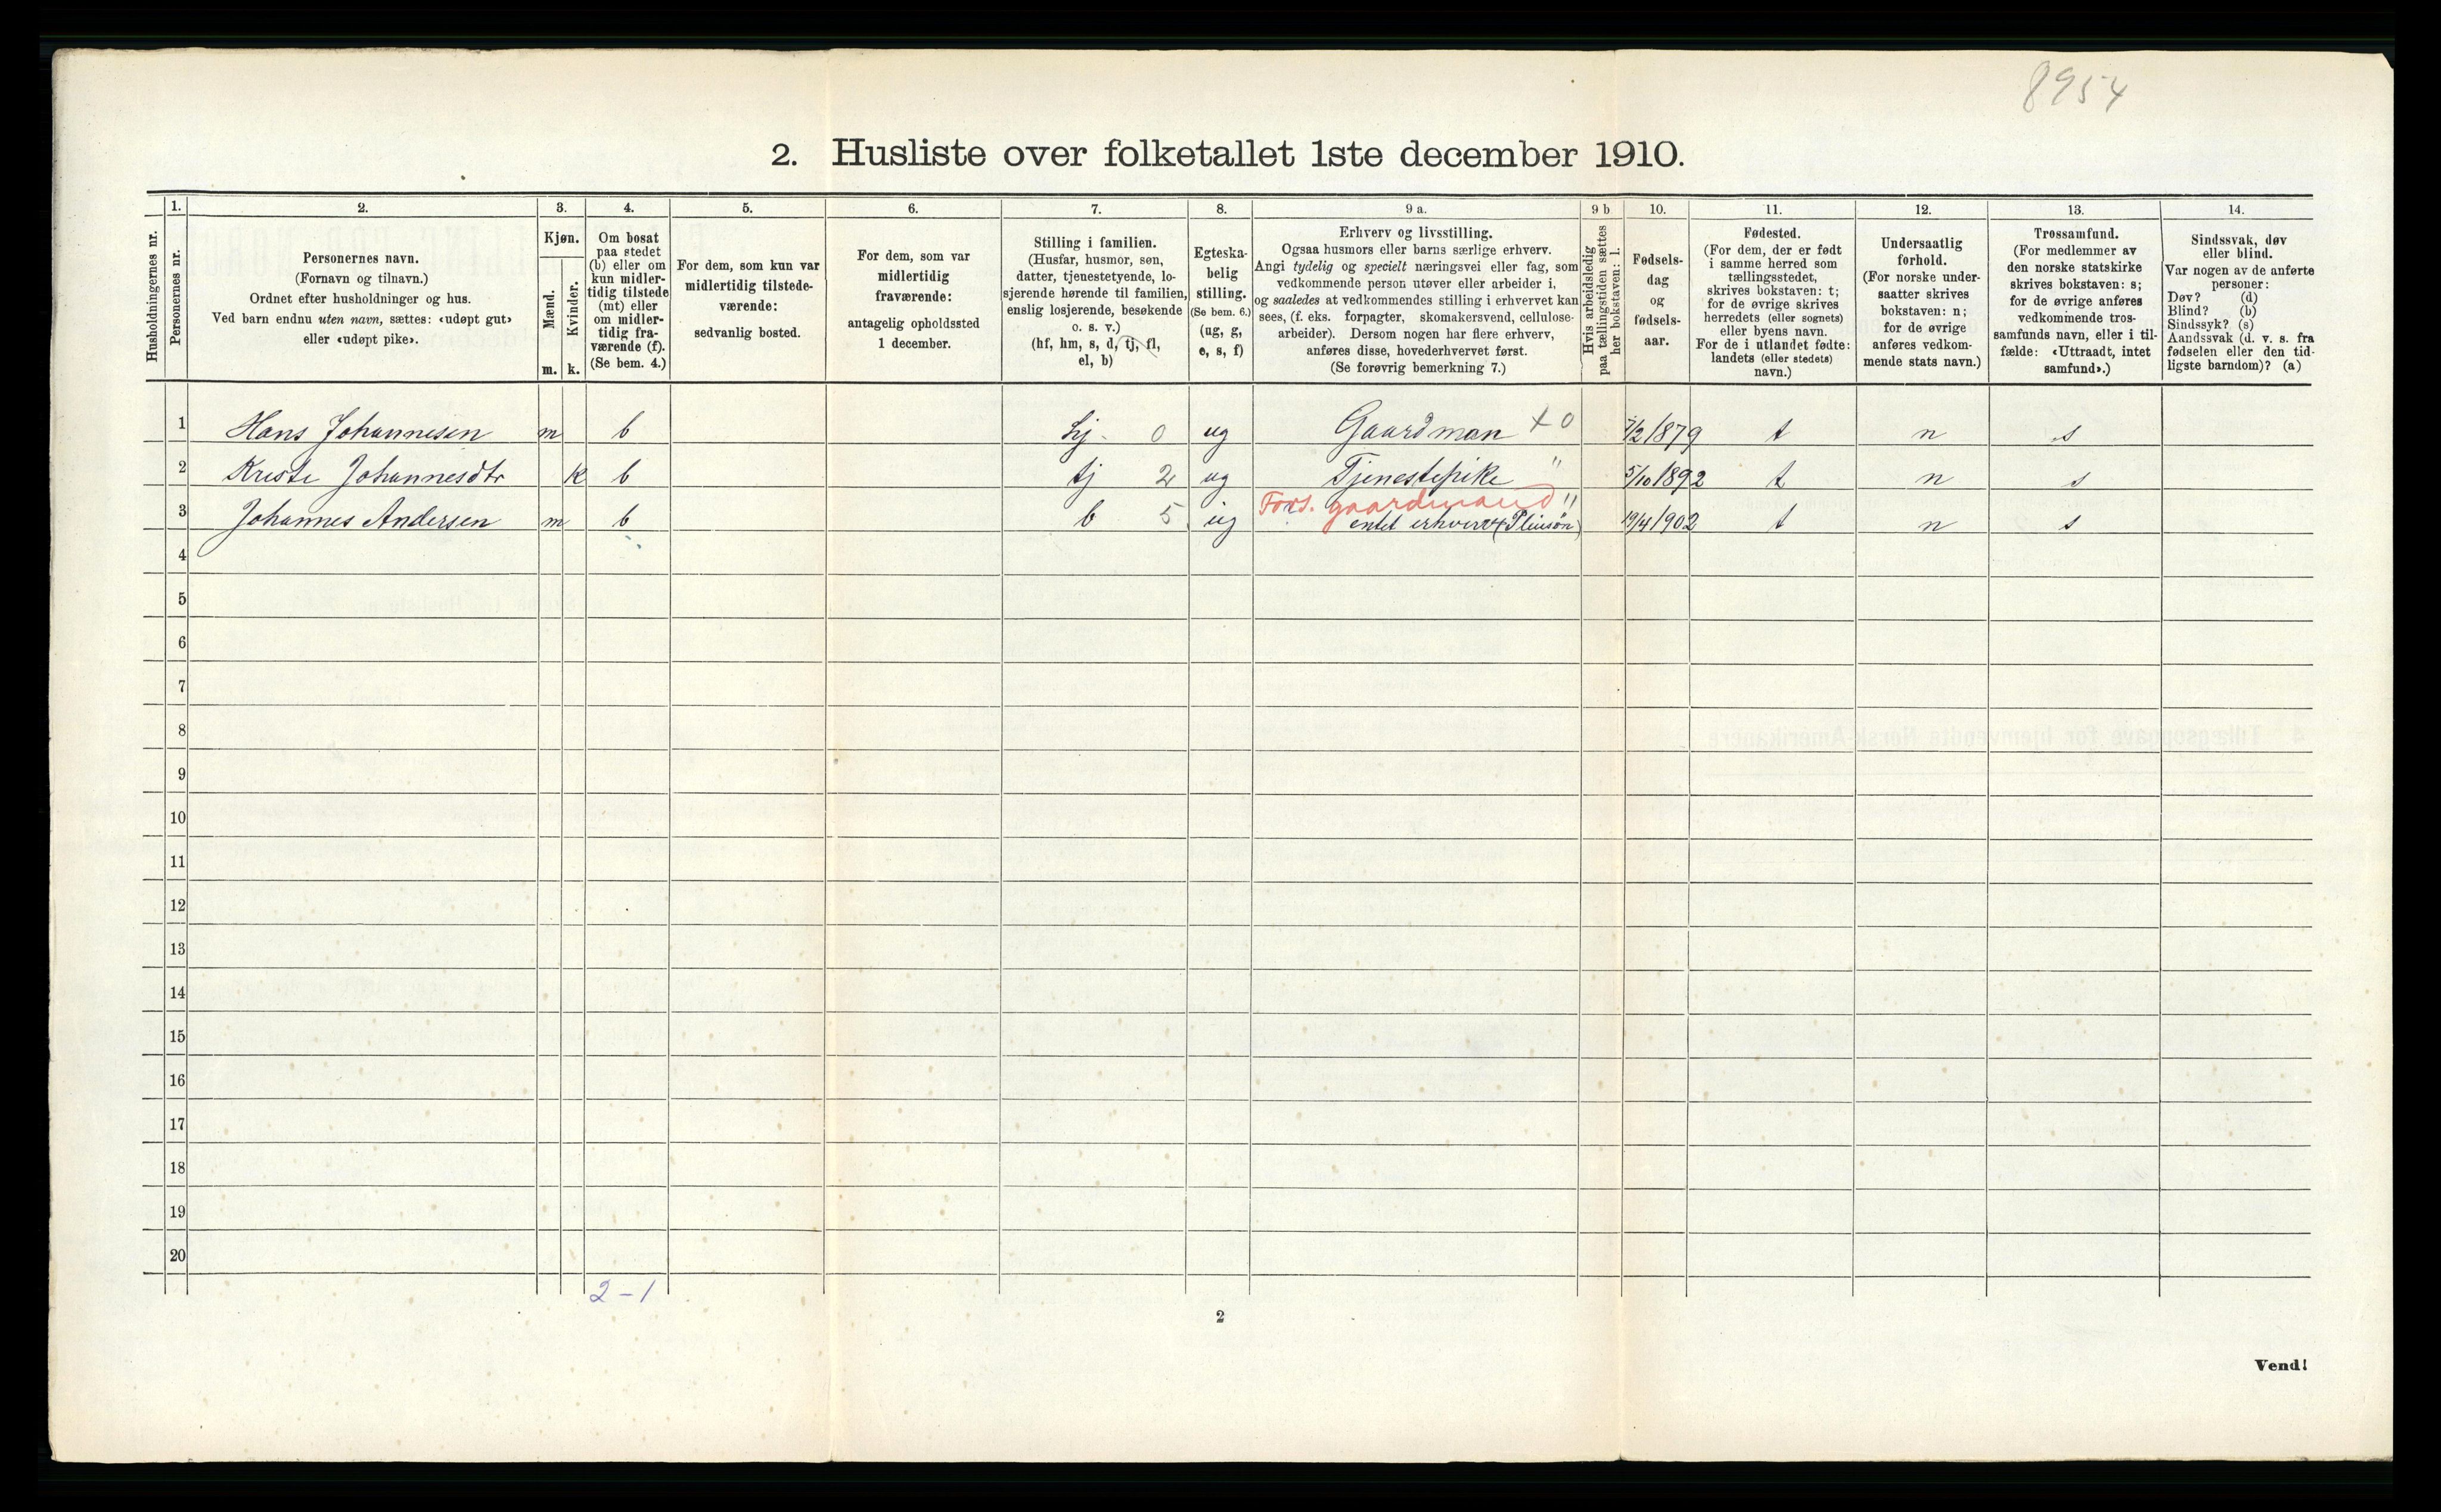 8954
2. Husliste over folketallet 1ste december 1910.
1. 2. 3. 4. 5. 6. 7. 8. 9 a. 9 b 10. 11. 12. 13. 14.
Husholdningernes nr.
Personernes nr.
Personernes navn.
(Fornavn og tilnavn.)
Ordnet efter husholdninger og hus.
Ved barn endnu uten navn, sættes: «udøpt gut»
eller «udøpt pike».
Kjøn.
Mænd.
Kvinder.
m. k.
Om bosat
paa stedet
(b) eller om
kun midler-
tidig tilstede
(mt) eller
om midler-
tidig fra-
værende (f).
(Se bem. 4.)
For dem, som kun var
midlertidig tilstede-
værende:
sedvanlig bosted.
For dem, som var
midlertidig
fraværende:
antagelig opholdssted
1 december.
Stilling i familien.
(Husfar, husmor, søn,
datter, tjenestetyende, lo-
sjerende hørende til familien,
enslig losjerende, besøkende
o. s. v.)
(hf, hm, s, d, tj, fl,
el, b)
Egteska-
belig
stilling.
(Se bem. 6.)
(ug, g,
e, s, f)
Erhverv og livsstilling.
Ogsaa husmors eller barns særlige erhverv.
Angi tydelig og specielt næringsvei eller fag, som
vedkommende person utøver eller arbeider i,
og saaledes at vedkommendes stilling i erhvervet kan
sees, (f. eks. forpagter, skomakersvend, cellulose-
arbeider). Dersom nogen har flere erhverv,
anføres disse, hovederhvervet først.
(Se forøvrig bemerkning 7.)
Hvis arbeidsledig
paa tællingstiden sættes
her bokstaven: l.
Fødsels-
dag
og
fødsels-
aar.
Fødested.
(For dem, der er født
i samme herred som
tællingsstedet,
skrives bokstaven: t;
for de øvrige skrives
herredets (eller sognets)
eller byens navn.
For de i utlandet fødte:
landets (eller stedets)
navn.)
Undersaatlig
forhold.
(For norske under-
saatter skrives
bokstaven: n;
for de øvrige
anføres vedkom-
mende stats navn.)
Trossamfund.
(For medlemmer av
den norske statskirke
skrives bokstaven: s;
for de øvrige anføres
vedkommende tros-
samfunds navn, eller i til-
fælde: «Uttraadt, intet
samfund».)
Sindssvak, døv
eller blind.
Var nogen av de anførte
personer:
Døv? (d)
Blind? (b)
Sindssyk? (s)
Aandssvak (d. v. s. fra
fødselen eller den tid-
ligste barndom)? (a)
1 Hans Johannesen m b 0 ug Gaardman x0 /2 1879 t n s
2 Kriste Johannesdtr k b tj 2 ug Tjenestepike " 5/10 1892 t n s
Fors. gaardmand "
3 Johannes Andersen m b b 5 ug entet erhverv 19/4 1902 t n s
4
5
6
7
8
9
10
11
12
13
14
15
16
17
18
19
20
2-1
2
Vend!